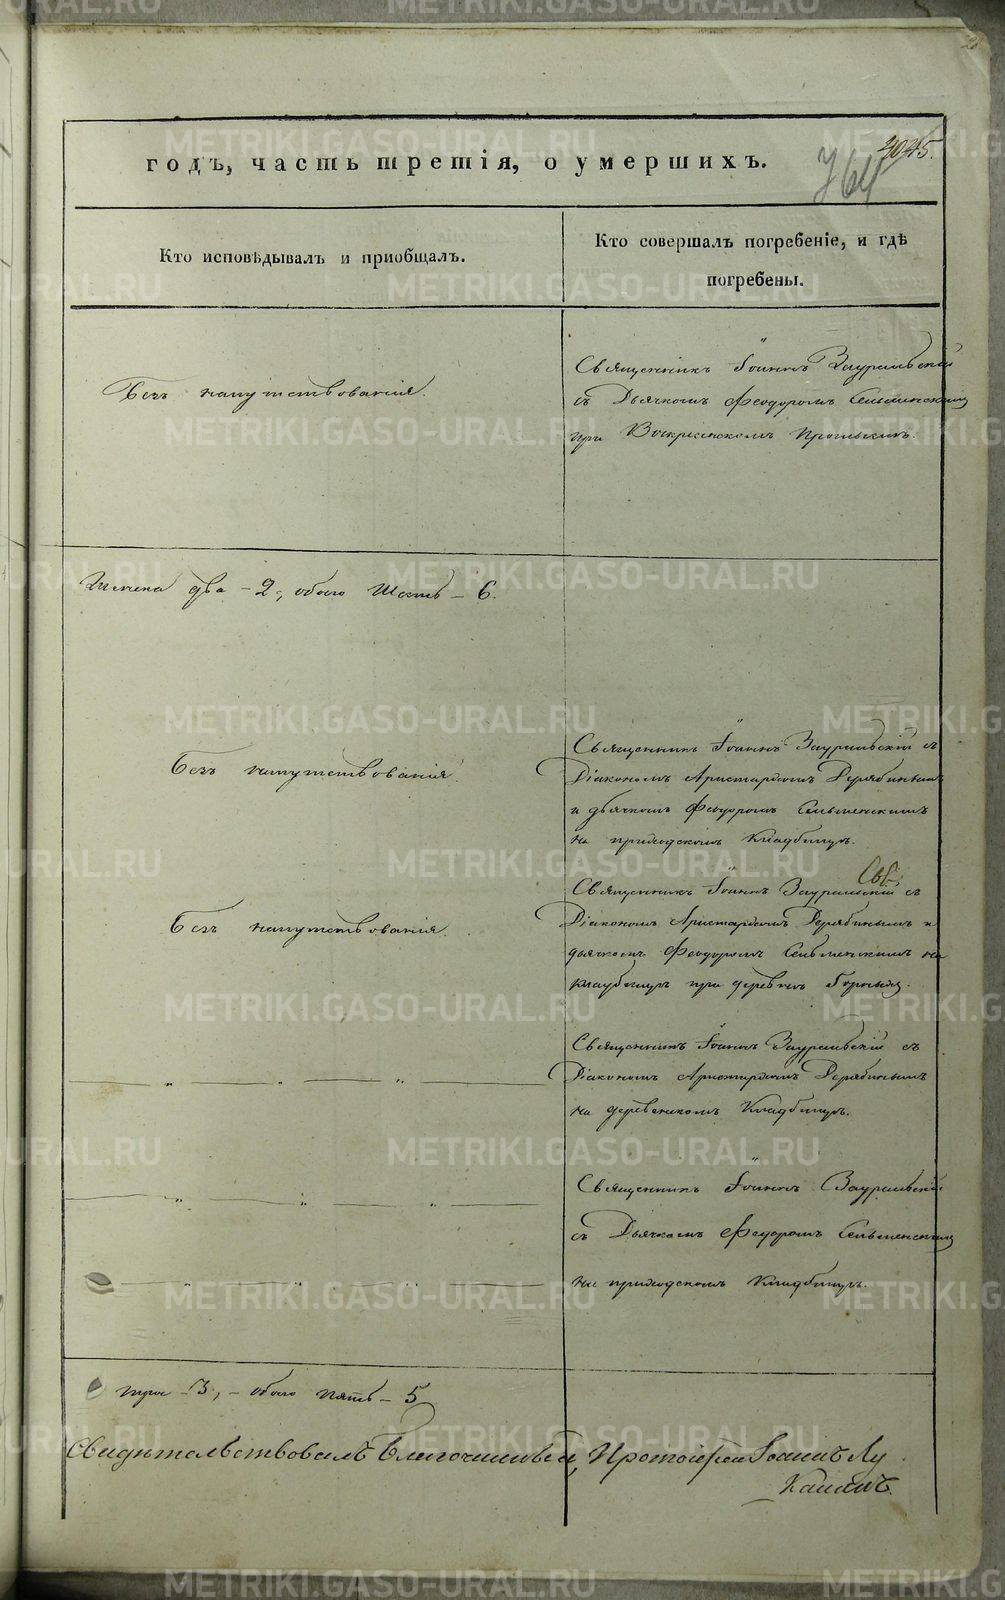 годъ, часть третія, о умершихъ.
764
Кто исповѣдывалъ и пріобщалъ.
Кто совершалъ погребеніе, и гдѣ
погребены.
Безъ напутствованія.
Священникъ Іоаннъ Зауральскій
съ Дьячкомъ Феодоромъ
при Воскресенскомъ
Женска два - 2, обоего Шесть - 6.
Безъ напутствованія.
Священникъ Іоаннъ Зауральскій съ
Діакономъ Аристархомъ Дерябинымъ
и дьячкомъ Феодоромъ
на приходскомъ Кладбищѣ.
Безъ напутствованія.
Священникъ Іоаннъ Зауральскій съ
Діакономъ Аристархомъ Дерябинымъ и
дьячкомъ Феодоромъ на
кладбищѣ при деревнѣ
Священникъ Іоаннъ Зауральскій съ
Діакономъ Аристархомъ Дерябинымъ
на деревенскомъ Кладбищѣ.
Священникъ Іоаннъ Зауральскій
съ Дьячкомъ Феодоромъ
на приходскомъ Кладбищѣ.
три - 3, - обоего пять - 5
Свидѣтельствовалъ Благочинный, Протоіерей Іоаннъ Лу
канинъ.
METRIKI.GASO-URAL.RU